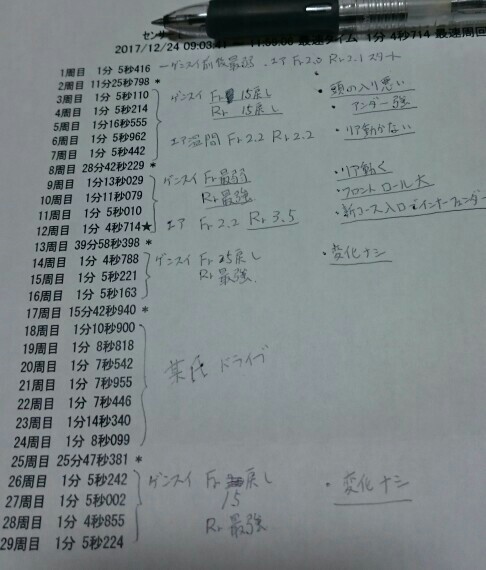 センサー
2017/12/24 09:03: 最速タイム 1分 4秒714 最速周回
1周目 1分 5秒416 ーゲンスイ前後最弱 エア Fr2.0 Rr2.1スタート
2周目 11分25秒798 *
3周目 1分 5秒110 ゲンスイ Fr 15戻し ・頭の入り悪い
4周目 1分 5秒214 Rr 15戻し ・アンダー強
5周目 1分16秒555
6周目 1分 5秒962 エア温間 Fr2.2 Rr2.2 ・リア動かない
7周目 1分 5秒442
8周目 28分42秒229 *
9周目 1分13秒029 ゲンスイ Fr 最弱 ・リア動く
10周目 1分11秒079 Rr 最強 ・フロントロール大
11周目 1分 5秒010 ・新コース入口でインナーフェンダー
12周目 1分 4秒714★ エア Fr2.2 Rr3.5
13周目 39分58秒398 *
14周目 1分 4秒788 ゲンスイ Fr 25戻し ・変化ナシ
15周目 1分 5秒221 Rr 最強
16周目 1分 5秒163
17周目 15分42秒940 *
18周目 1分10秒900
19周目 1分 8秒818
20周目 1分 7秒542 氏ドライブ
21周目 1分 7秒955
22周目 1分 7秒446
23周目 1分14秒340
24周目 1分 8秒099
25周目 25分47秒381 *
26周目 1分 5秒242 ゲンスイ Fr 戻し ・変化ナシ
27周目 1分 5秒002 15
28周目 1分 4秒855 Rr 最強
29周目 1分 5秒224